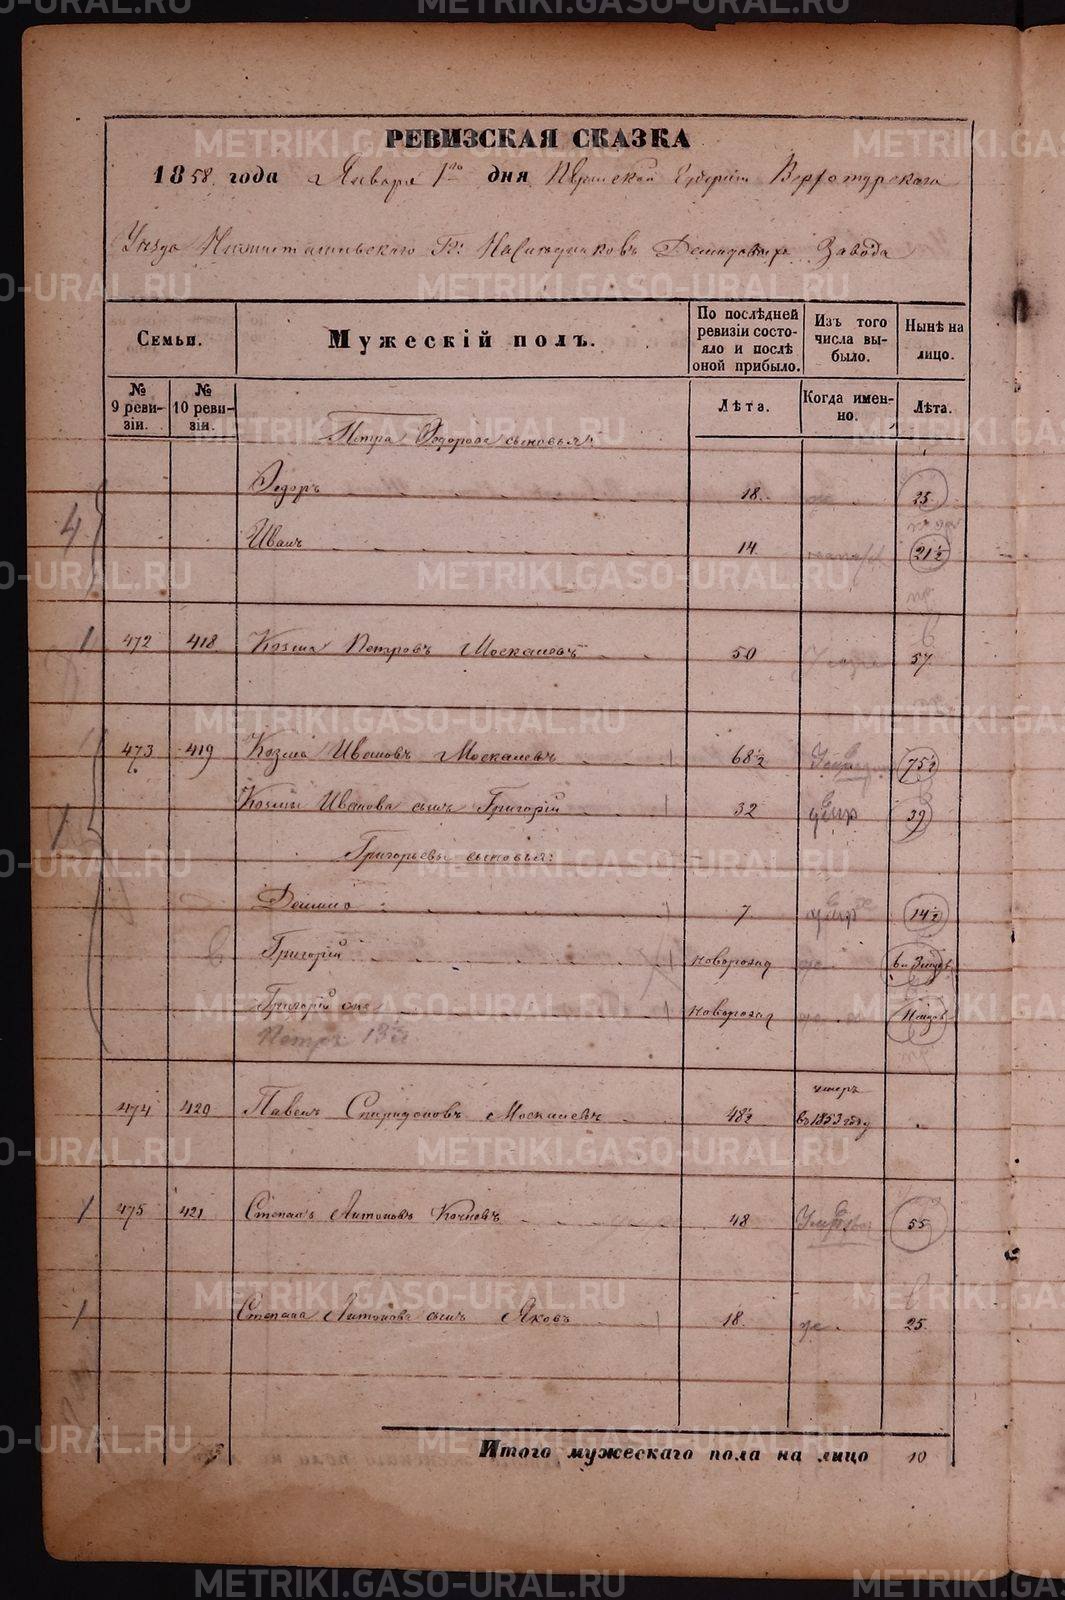 РЕВИЗСКАЯ СКАЗКА
1858 года Января 1го дня Пермской Губерніи Верхотурскаго
Уѣзда Гг: Наслѣдниковъ Демидовыхъ Завода
Семьи.
Мужескій полъ.
По послѣдней ревизіи состояло и послѣ оной прибыло.
Изъ того числа выбыло.
Нынѣ на лицо.
№ 9 ревизіи.
№ 10 ревизіи.
Лѣта.
Когда именно.
Лѣта.
Петра Федорова сыновья:
Федоръ 18. 25
4
Иванъ 14. 21½
1 472 418 Козма Петровъ Москалевъ 50 57
473 419 Козма Ивановъ Москалевъ 68½ 75½
Козмы Иванова сынъ Григорій 32 39
Григорьевы сыновья:
7 14½
Григорій новорожд
Григорій новорожд
Петръ
474 420 Павелъ Спиридоновъ Москалевъ 48½ умеръ въ 1853 году
1 475 421 Степанъ Антоновъ 48 55
1 Степана Антонова сынъ Яковъ 18. 25.
Итого мужескаго пола на лицо 10
METRIKI.GASO-URAL.RU